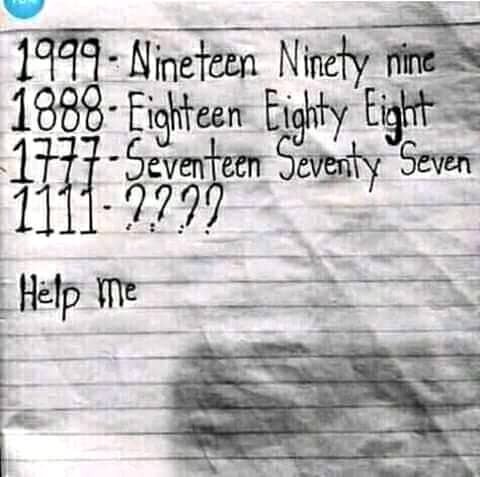 1999 - Nineteen Ninety nine
1888 - Eighteen Eighty Eight
1777 - Seventeen Seventy Seven
1111 - ????
Help me